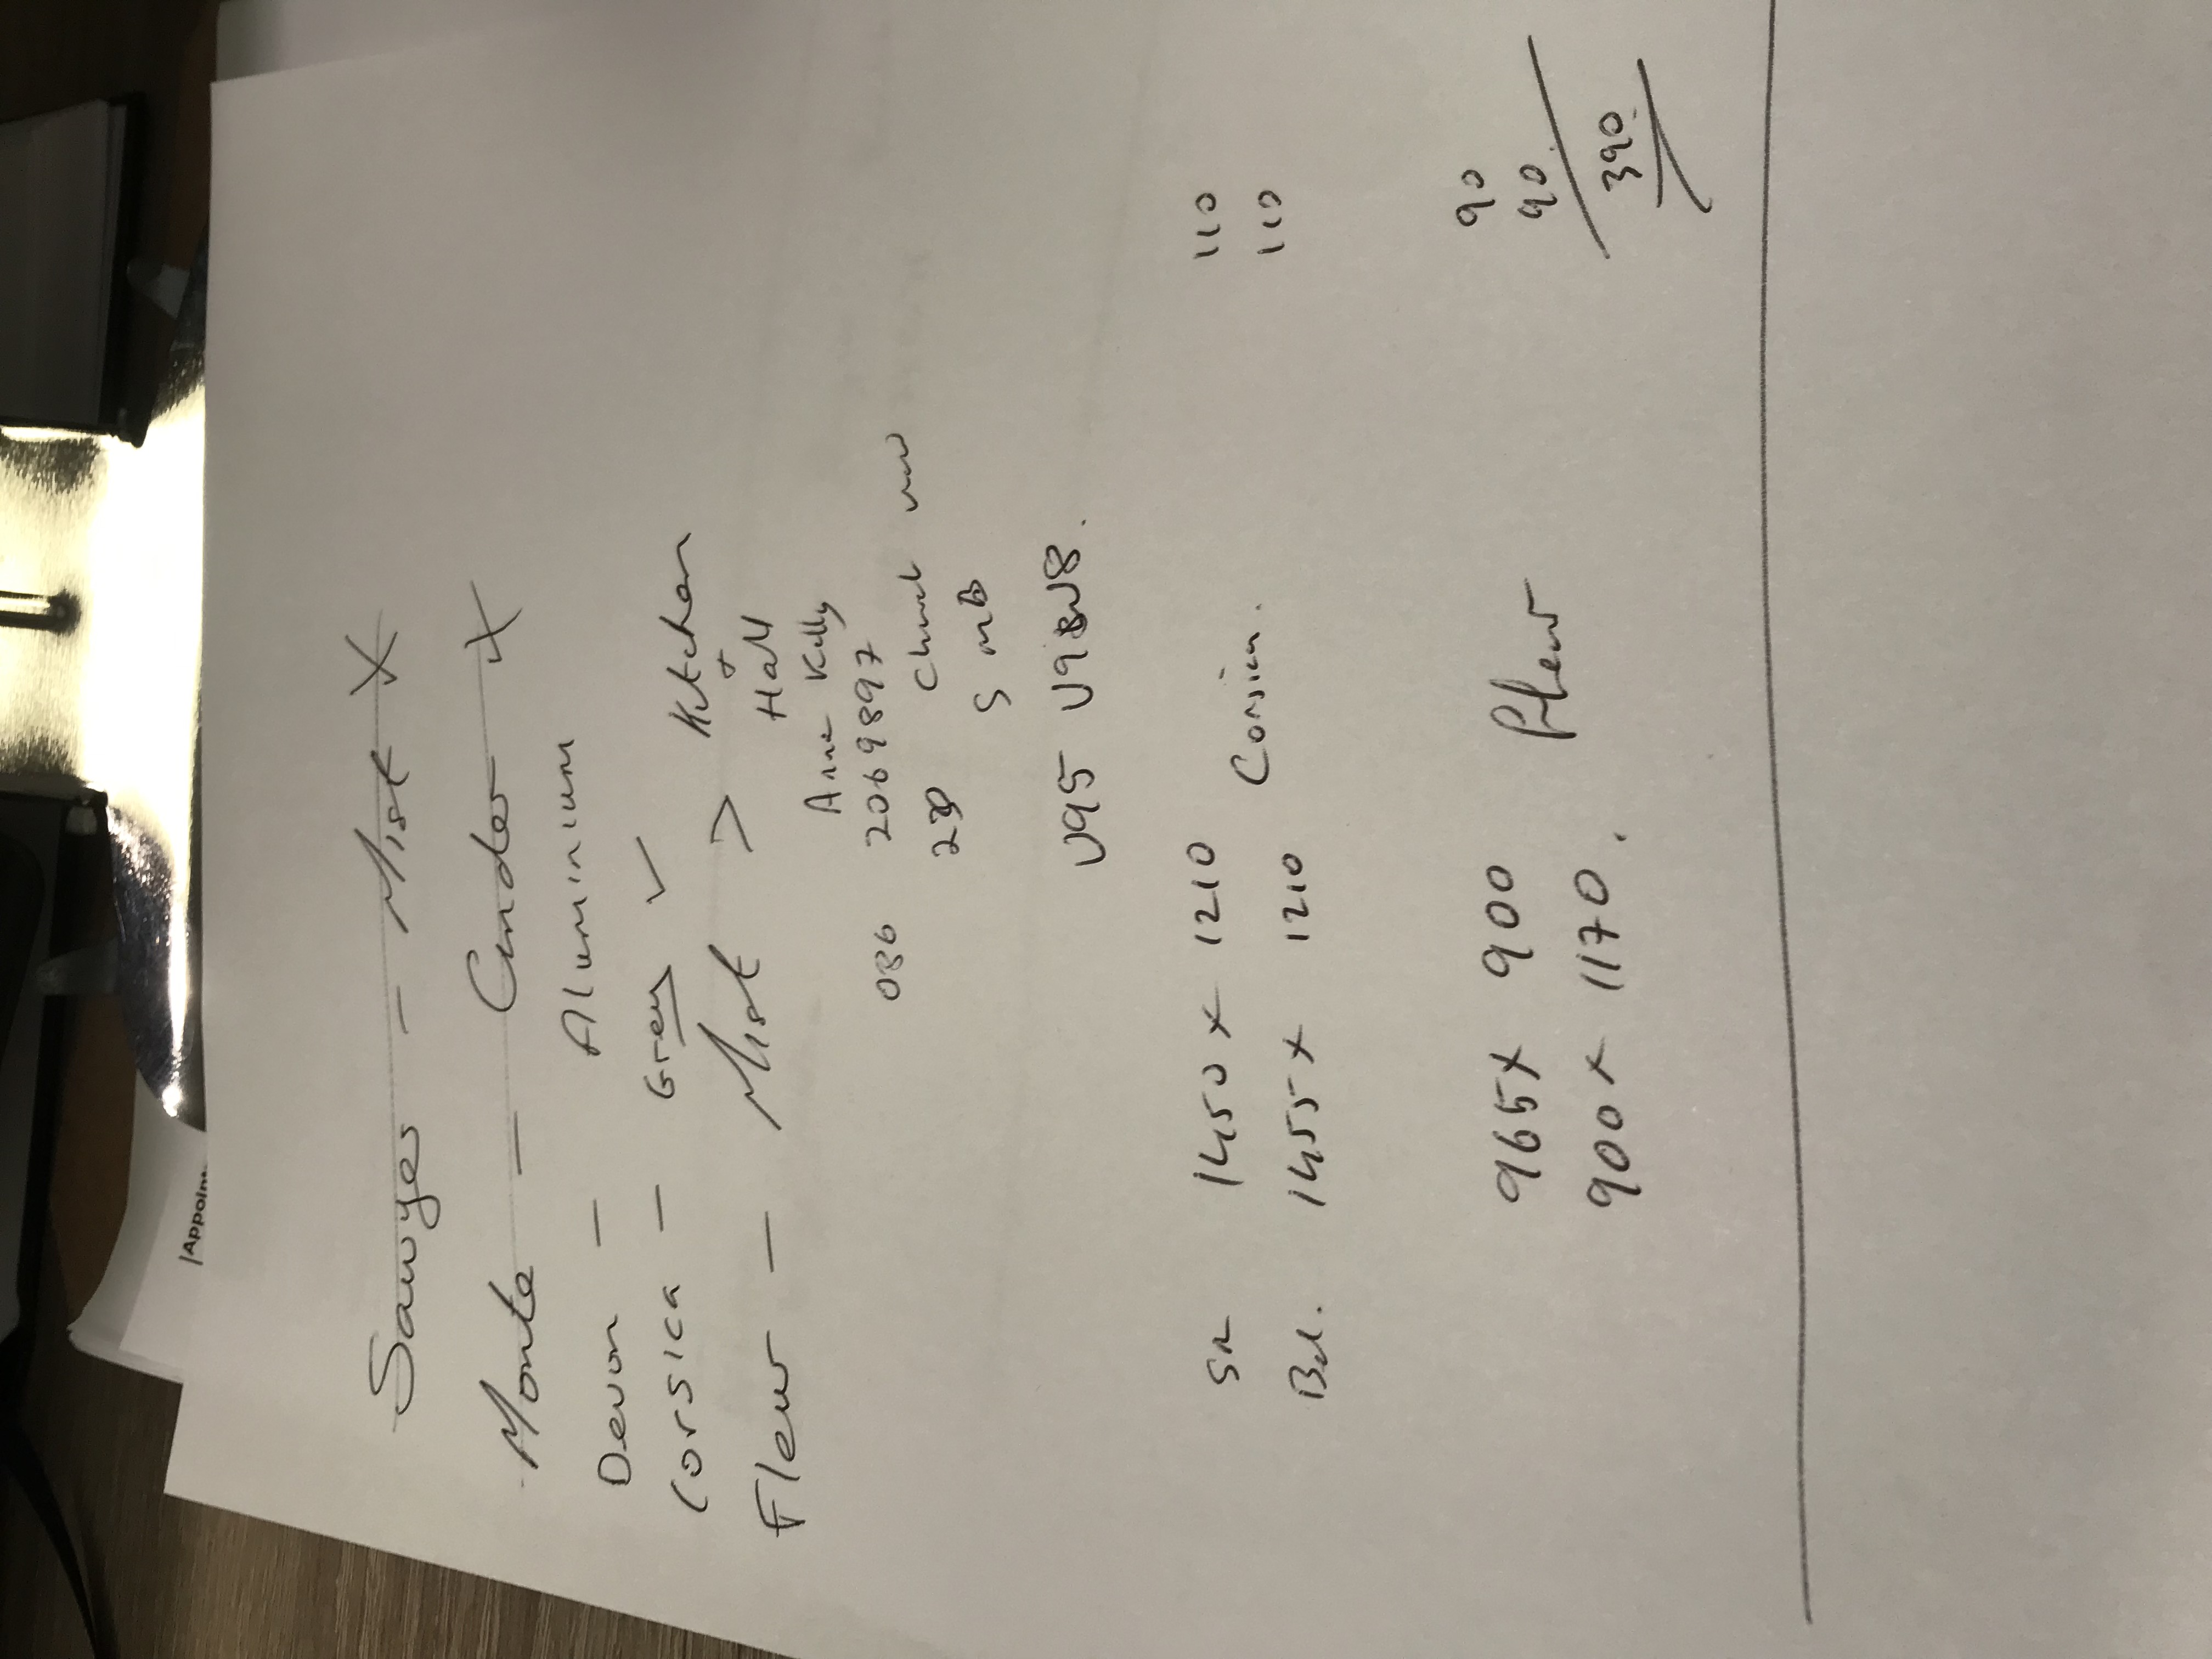 Sawyer - Mist X
Monte - Cinder X
Devon - Aluminium
Corsica - Grey ✓
Flew - Mist > Kitchen
+ Hall
Anne Kelly
086 2069897
Church view
S
V95 V9BW8.
1450 x 1210 110
Corsica.
1455 x 1210 110
965 x 900 90
Flew
900 x 1170. 90
390
|Appoin